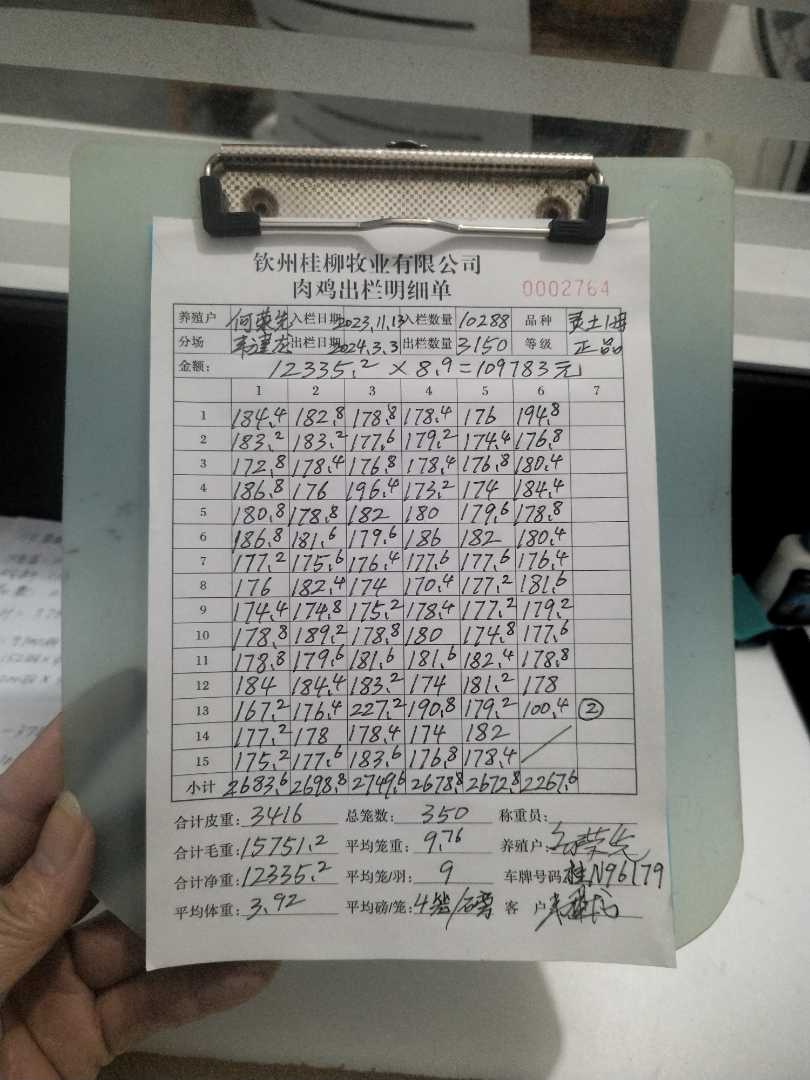 钦州桂柳牧业有限公司
肉鸡出栏明细单 0002764
养殖户 何荣先 入栏日期 2023.11.13 入栏数量 10288 品种 灵土1母
分场 出栏日期 2024.3.3 出栏数量 3150 等级 正品
金额: 12335.2 × 8.9=109783元
1 2 3 4 5 6 7
1 184.4 182.8 178.8 178.4 176 194.8
2 183.2 183.2 177.6 179.2 174.4 176.8
3 172.8 178.4 176.8 178.4 176.8 180.4
4 186.8 176 196.4 173.2 174 184.4
5 180.8 178.8 182 180 179.6 178.8
6 186.8 181.6 179.6 186 182 180.4
7 177.2 175.6 176.4 177.6 177.6 176.4
8 176 182.4 174 170.4 177.2 181.6
9 174.4 174.8 175.2 178.4 177.2 179.2
10 178.8 189.2 178.8 180 174.8 177.6
11 178.8 179.6 181.6 181.6 182.4 178.8
12 184 184.4 183.2 174 181.2 178
13 167.2 176.4 227.2 190.8 179.2 100.4 ②
14 177.2 178 178.4 174 182
15 175.2 177.6 183.6 176.8 178.4
小计 2683.6 2698.8 2749.6 2678.8 2672.8 2267.6
合计皮重: 3416 总笼数: 350 称重员:
合计毛重: 15751.2 平均笼重: 9.76 养殖户: 何荣先
合计净重: 12335.2 平均笼/羽: 9 车牌号码: 桂N96179
平均体重: 3.92 平均磅/笼: 4笼/磅 客 户